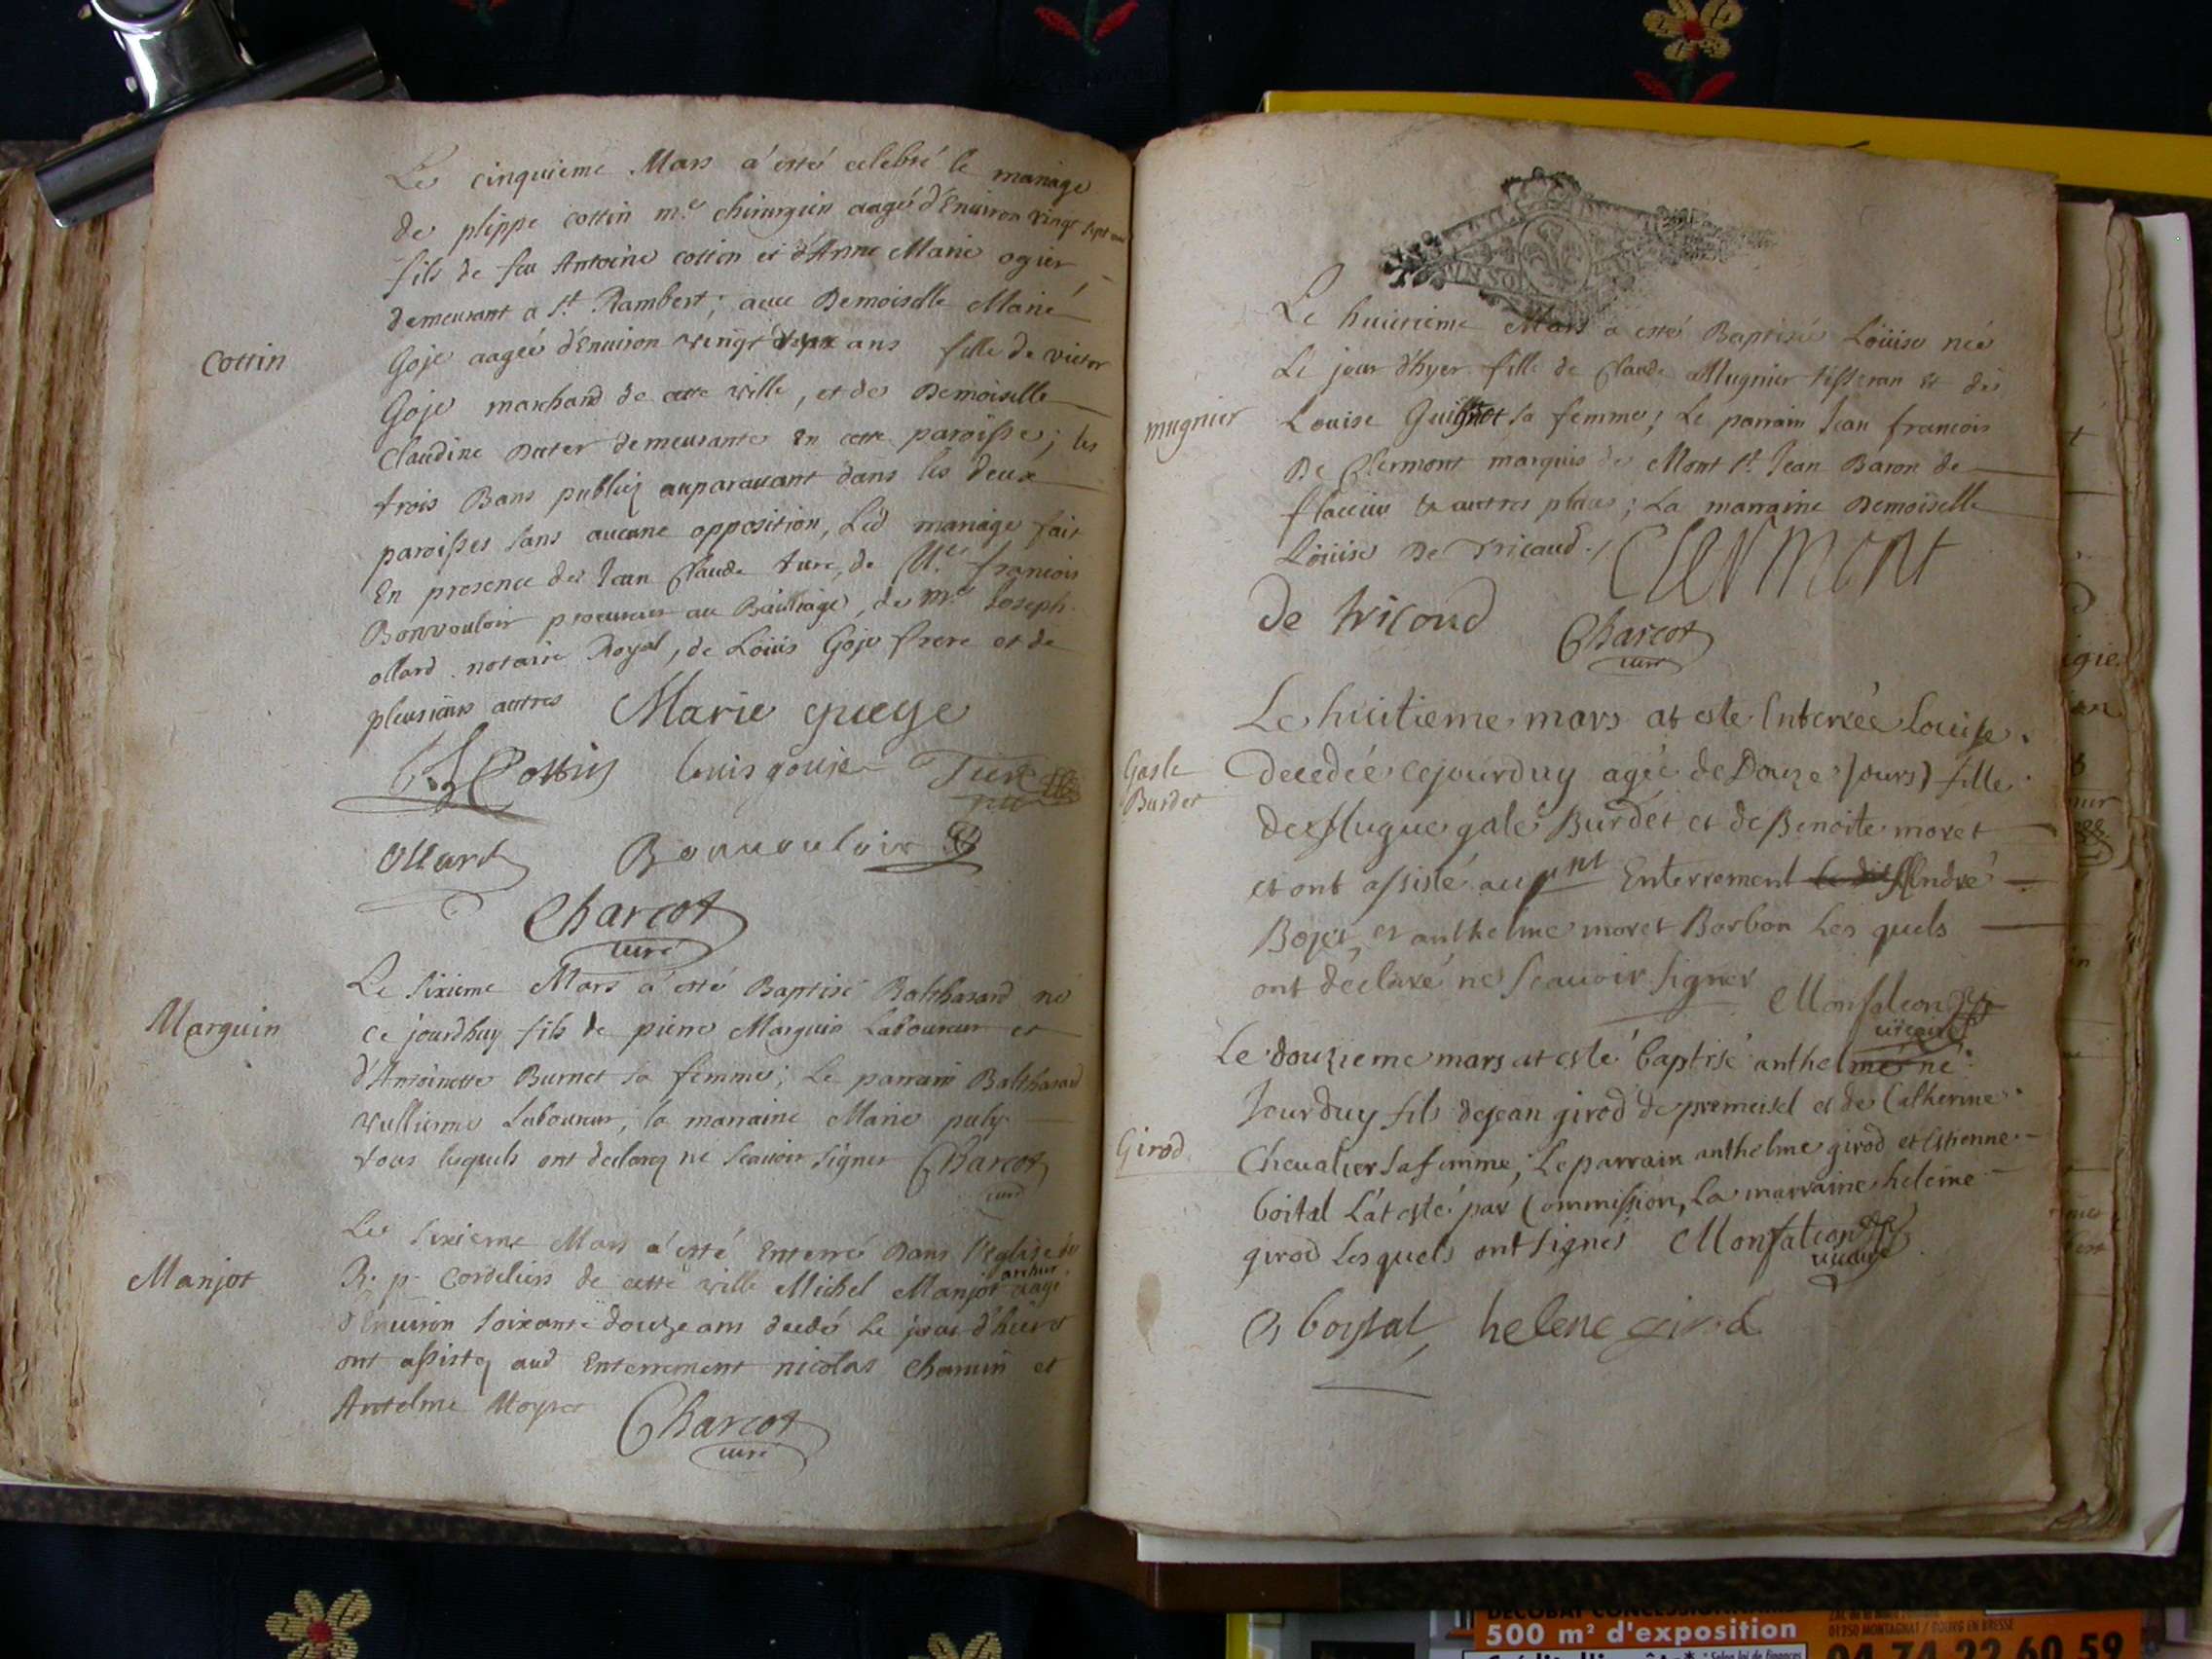 Le cinquieme Mars a esté celebré le mariage
de plippe cottin me. chirurgien aagé d'Enuiron vingt sept ans
fils de feu Antoine cottin et d'Anne Marie ogier
demeurant a St. Rambert; auec Demoiselle Marie
Cottin
Goje aagée d'Enuiron vingt deux ans fille de victor
Goje marchand de cette ville, et de Demoiselle
Claudine Duter demeurante En cette paroisse; les
trois Bans publiez auparauant dans les deux
paroisses sans aucune opposition, Led mariage fait
En presence de Jean Claude ture, de Me. francois
Bonvouloir procureur au Bailliage, de Mr. Joseph
ollard notaire Royal, de Loüis Goje frere et de
plusieurs autres Marie gueye
Cottin louis gouje
Ollard Bonuouloir
Charcot
curé
Le sixieme Mars a esté Baptisé Balthasard né
Marguin
ce jourdhuy fils de pierre Marguin Laboureur et
d'Antoinette Burnet sa femme; Le parrain Balthasard
vullierme Laboureur, la marraine Marie puly
tous lesquels ont declarez ne scauoir signer Charcot
curé
Le sixieme Mars a esté Enterré Dans l'eglise des
Manjot
R. p. Cordeliers de cette ville Michel Manjot archer aagé
d'Enuiron soixante douze ans decedé Le jour d'hier
ont assistez aud Enterrement nicolas chamin et
Antelme Moyret
Charcot
curé
Le huictieme Mars a esté Baptisée Loüise née
Le jour d'hyer fille de Claude Mugnier tisseran et de
mugnier
Louise Guillot sa femme; Le parrain Jean francois
De Clermont marquis de Mont St. Jean Baron de
flaccieu & autres places; La marraine Demoiselle
Loüise De Tricaud. Clermont
de tricaud
Charcot
curé
Le huitieme mars at este Enterrée louise
Gasle
Burdet
decedée cejourduy agée de Douze jours fille
de Hugue galé Burdet et de Benoite moret
et ont assisté au pnt Enterrement le dit André
Bojet, et anthelme moret Barbon Les quels
ont declaré ne scauoir signer Monfalcon
vicaire
Le douzieme mars at esté baptisé anthelme né
Jourduy fils de jean girod de premeisel et de Catherine
Girod
Cheualier sa femme, Le parrain anthelme girod et Estienne
boital L'at esté par Commission, La marraine heleine
girod Lesquels ont signés Monfalcon
vicaire
boystat, helene girod
DECOBAT CONCESSIONNAIRE
500 m² d'exposition
01250 MONTAGNAT / BOURG EN BRESSE
04 74 22 60 59